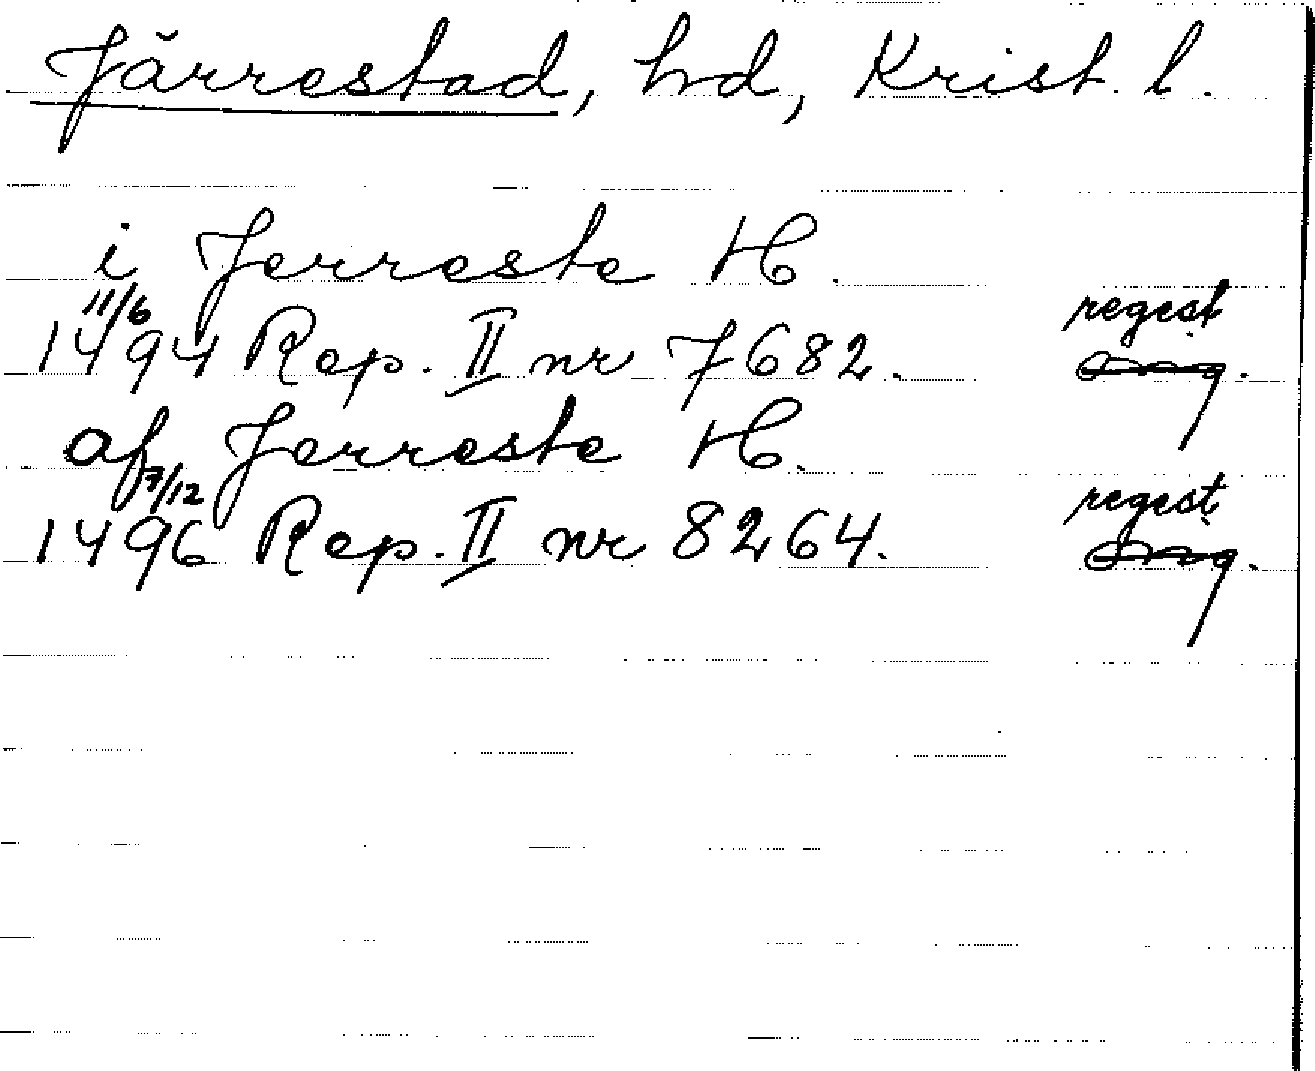 Järrestad, hd, Krist. l.
i Jerreste H.
11/6 regest
1494 Rep. II nr 7682.
af Jerreste H.
7/12 regest
1496 Rep. II nr 8264.